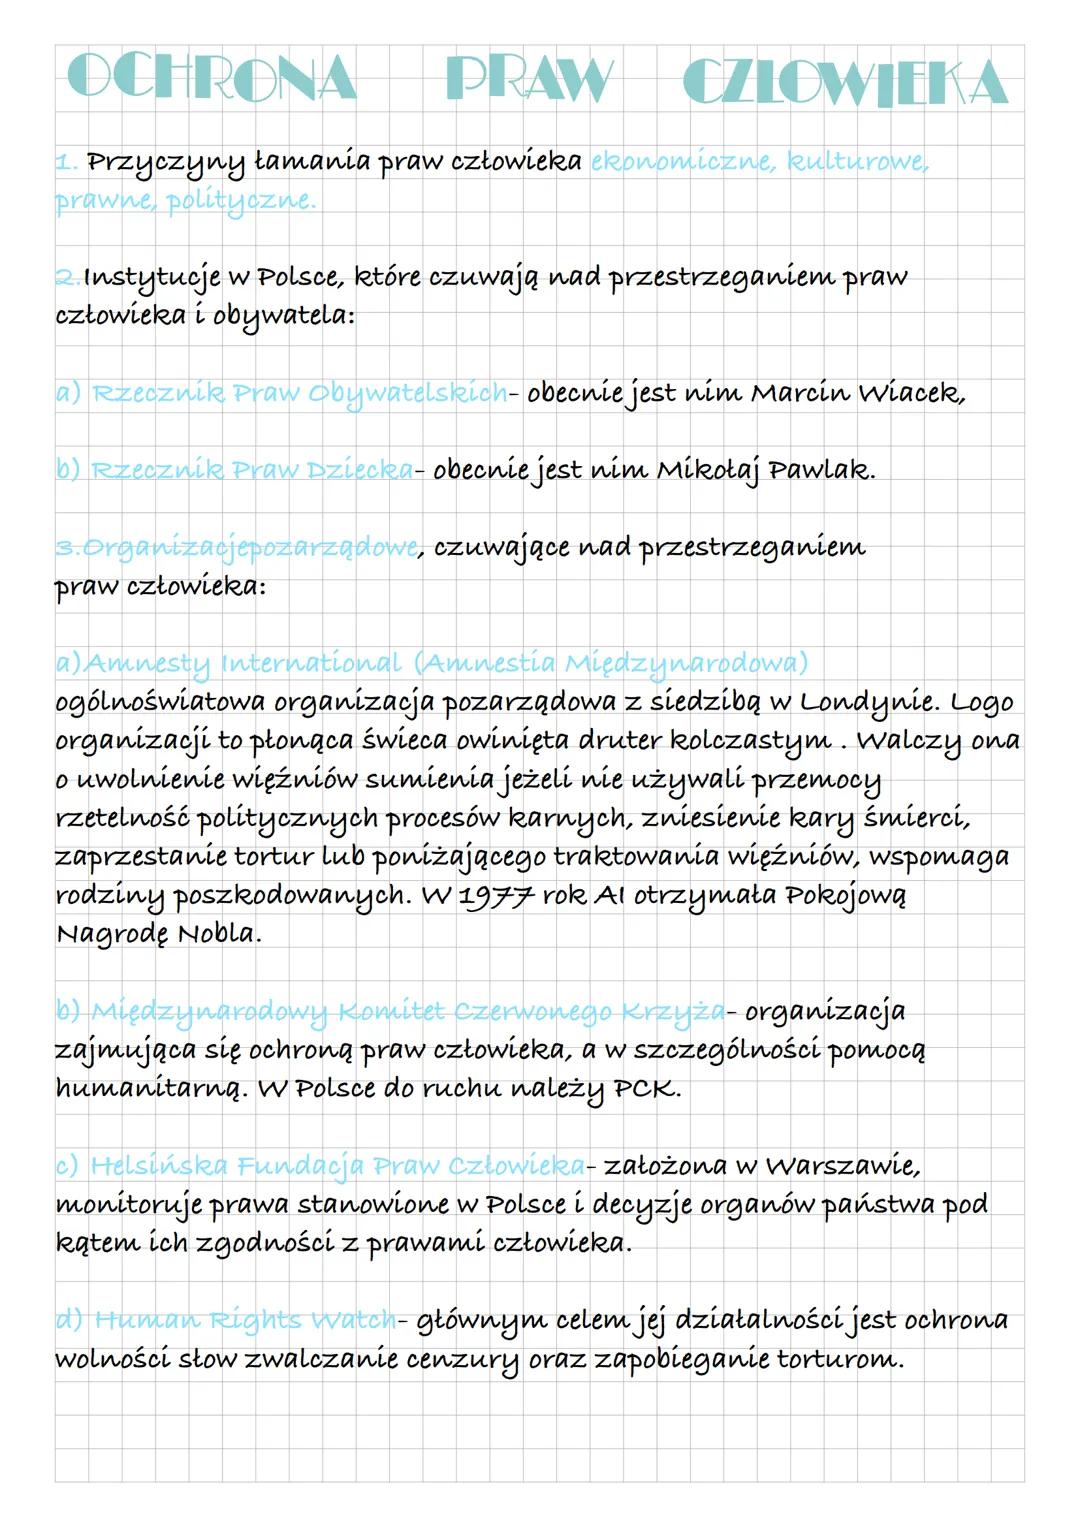 OCHRONA PRAW CZŁOWIEKA
1. Przyczyny łamania praw człowieka ekonomiczne, kulturowe,
prawne, polityczne.
2.Instytucje w Polsce, które czuwają nad przestrzeganiem praw
człowieka i obywatela:
a) Rzecznik Praw Obywatelskich- obecnie jest nim Marcin Wiacek,
b) Rzecznik Praw Dziecka- obecnie jest nim Mikołaj Pawlak.
3.Organizacjepozarządowe, czuwające nad przestrzeganiem
praw człowieka:
a)Amnesty International (Amnestia Międzynarodowa)
ogólnoświatowa organizacja pozarządowa z siedzibą w Londynie. Logo
organizacji to płonąca świeca owinięta druter kolczastym . Walczy ona
o uwolnienie więźniów sumienia jeżeli nie używali przemocy
rzetelność politycznych procesów karnych, zniesienie kary śmierci,
zaprzestanie tortur lub poniżającego traktowania więźniów, wspomaga
rodziny poszkodowanych. W 1977 rok AI otrzymała Pokojową
Nagrodę Nobla.
b) Międzynarodowy Komitet Czerwonego Krzyża- organizacja
zajmująca się ochroną praw człowieka, a w szczególności pomocą
humanitarną. W Polsce do ruchu należy PCK.
c) Helsińska Fundacja Praw Człowieka- założona w Warszawie,
monitoruje prawa stanowione w Polsce i decyzje organów państwa pod
kątem ich zgodności z prawami człowieka.
d) Human Rights Watch- głównym celem jej działalności jest ochrona
wolności słow zwalczanie cenzury oraz zapobieganie torturom.